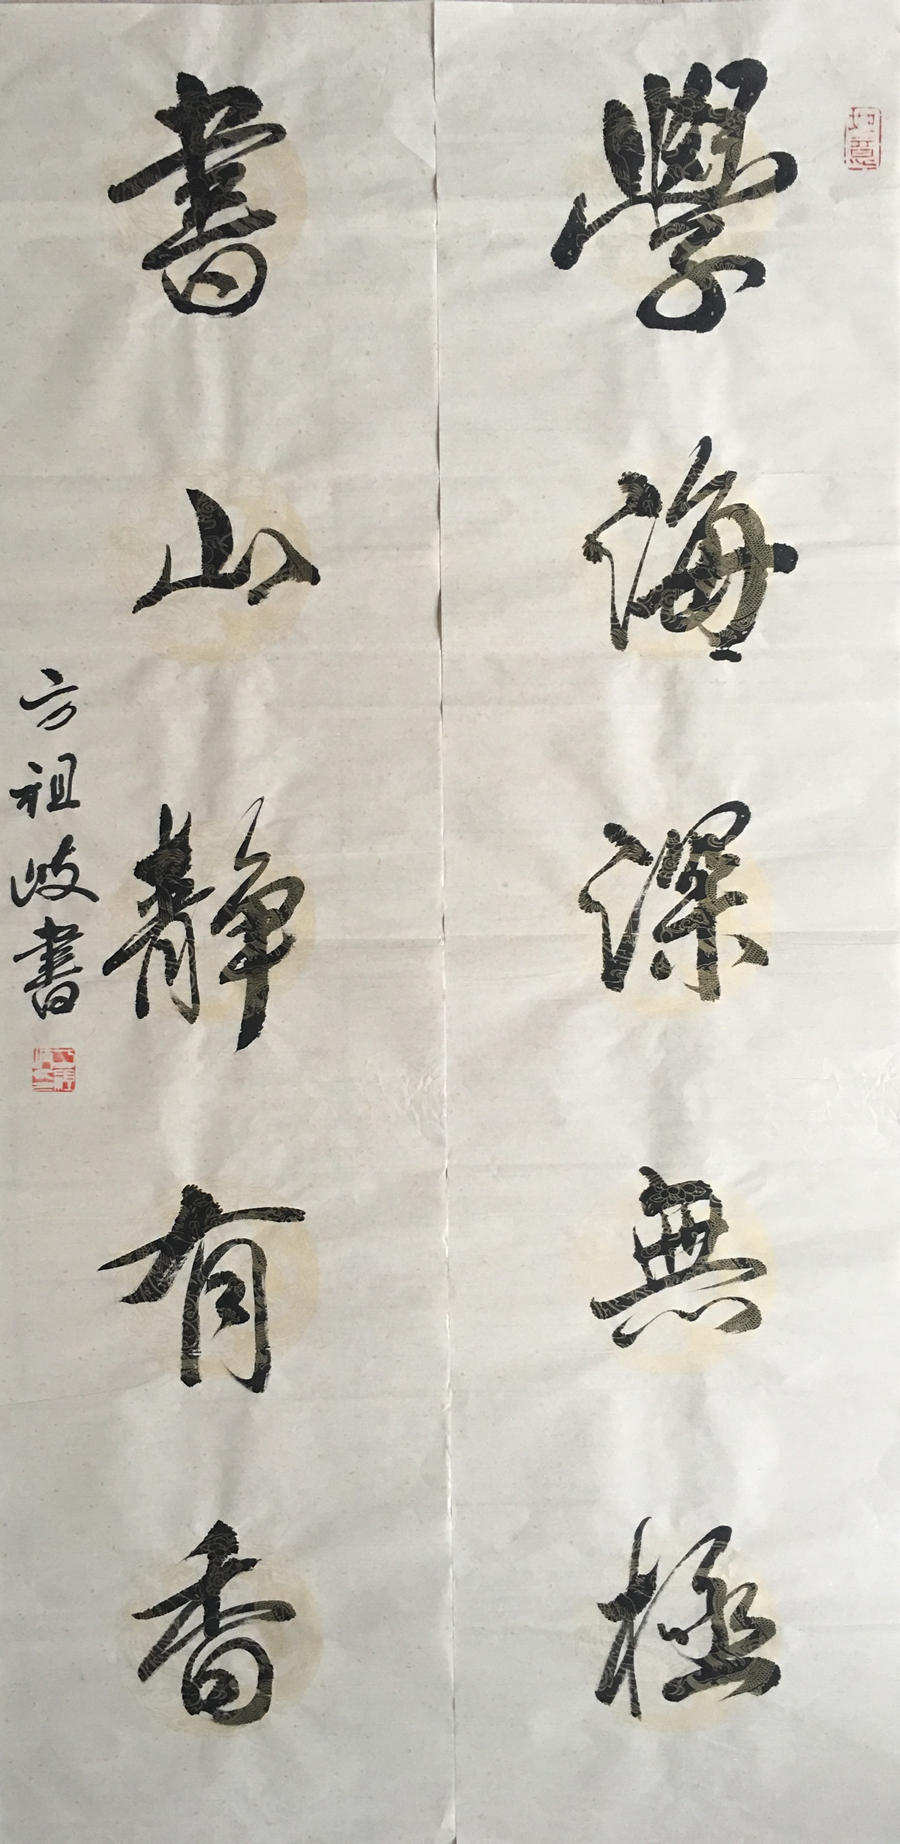 學海深無極
書山靜有香
方祖岐書